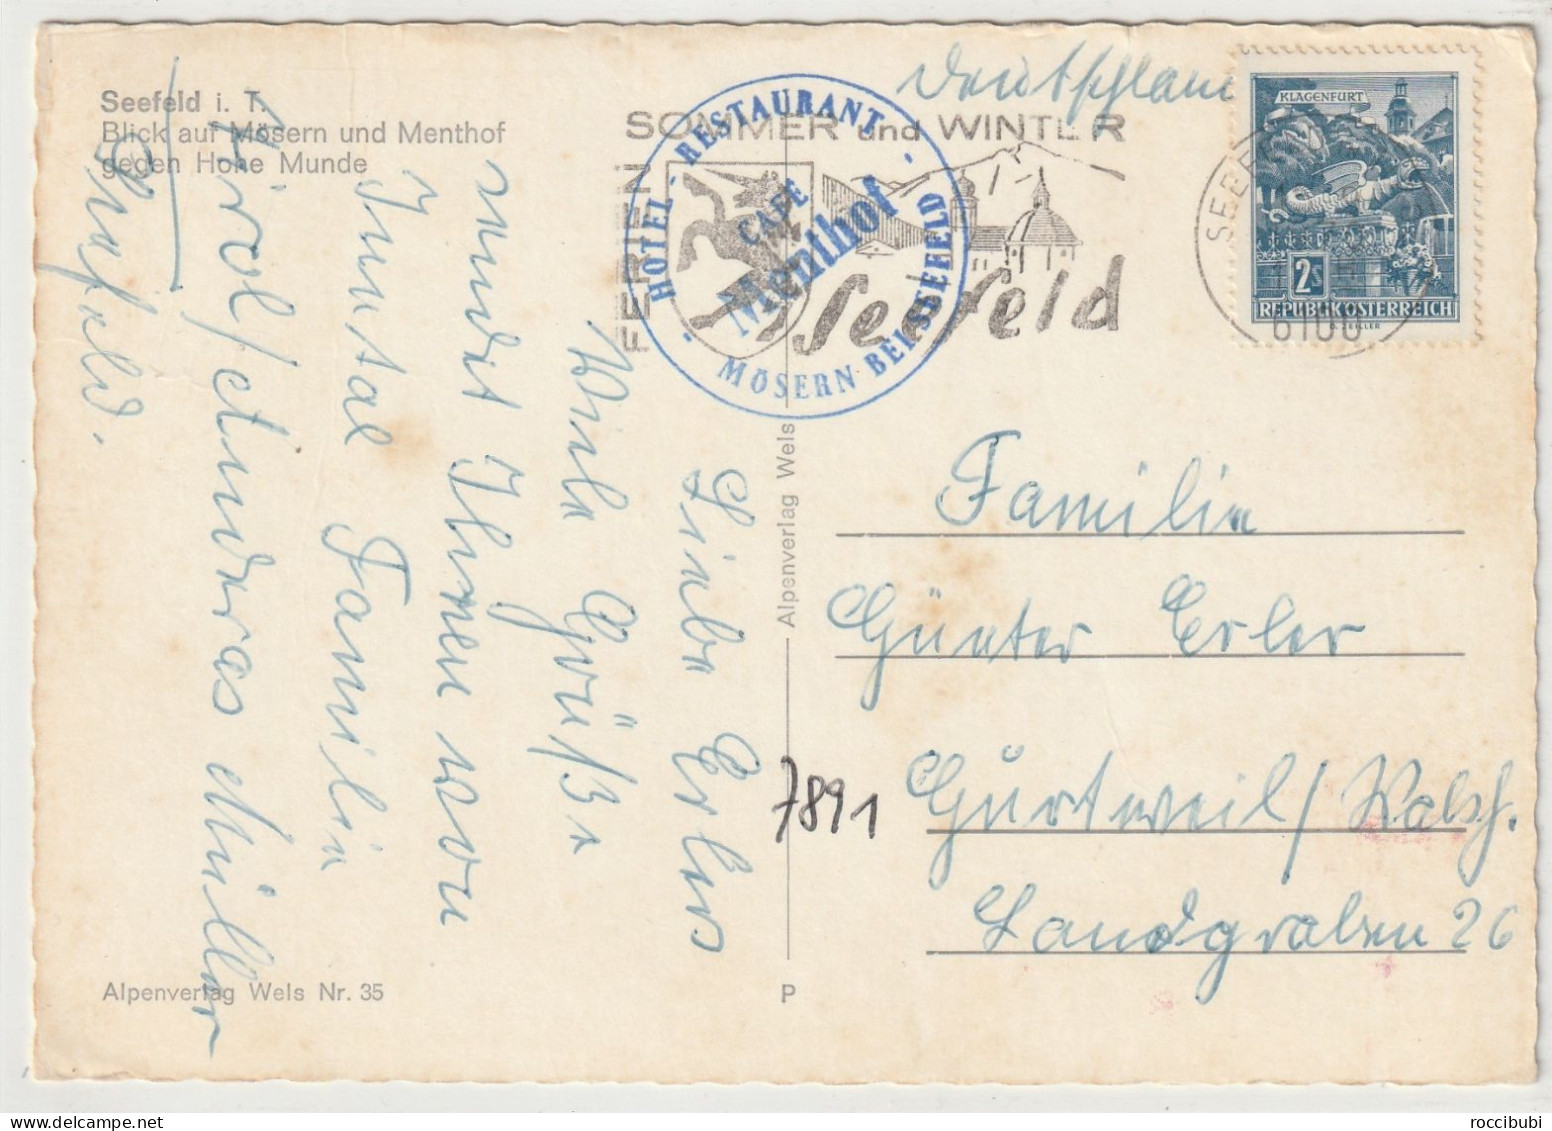 Seefeld i. T.
Blick auf Mösern und Menthof
gegen Hohe Munde
Liebe Erlers
Viele Grüße
sendet Ihnen von
Inntal Familie
Tirol/Andreas Müller
Seefeld.
Alpenverlag Wels Nr. 35
Alpenverlag Wels
P
7891
FERIEN
SOMMER und WINTER
Seefeld
HOTEL - RESTAURANT -
CAFE
Menthof
- MÖSERN BEI SEEFELD
Deutschland
KLAGENFURT
2S
REPUBLIK ÖSTERREICH
O. ZEILLER
6100
Familie
Günter Erler
Gurtweil/Waldsh.
Landgraben 26
roccibubi